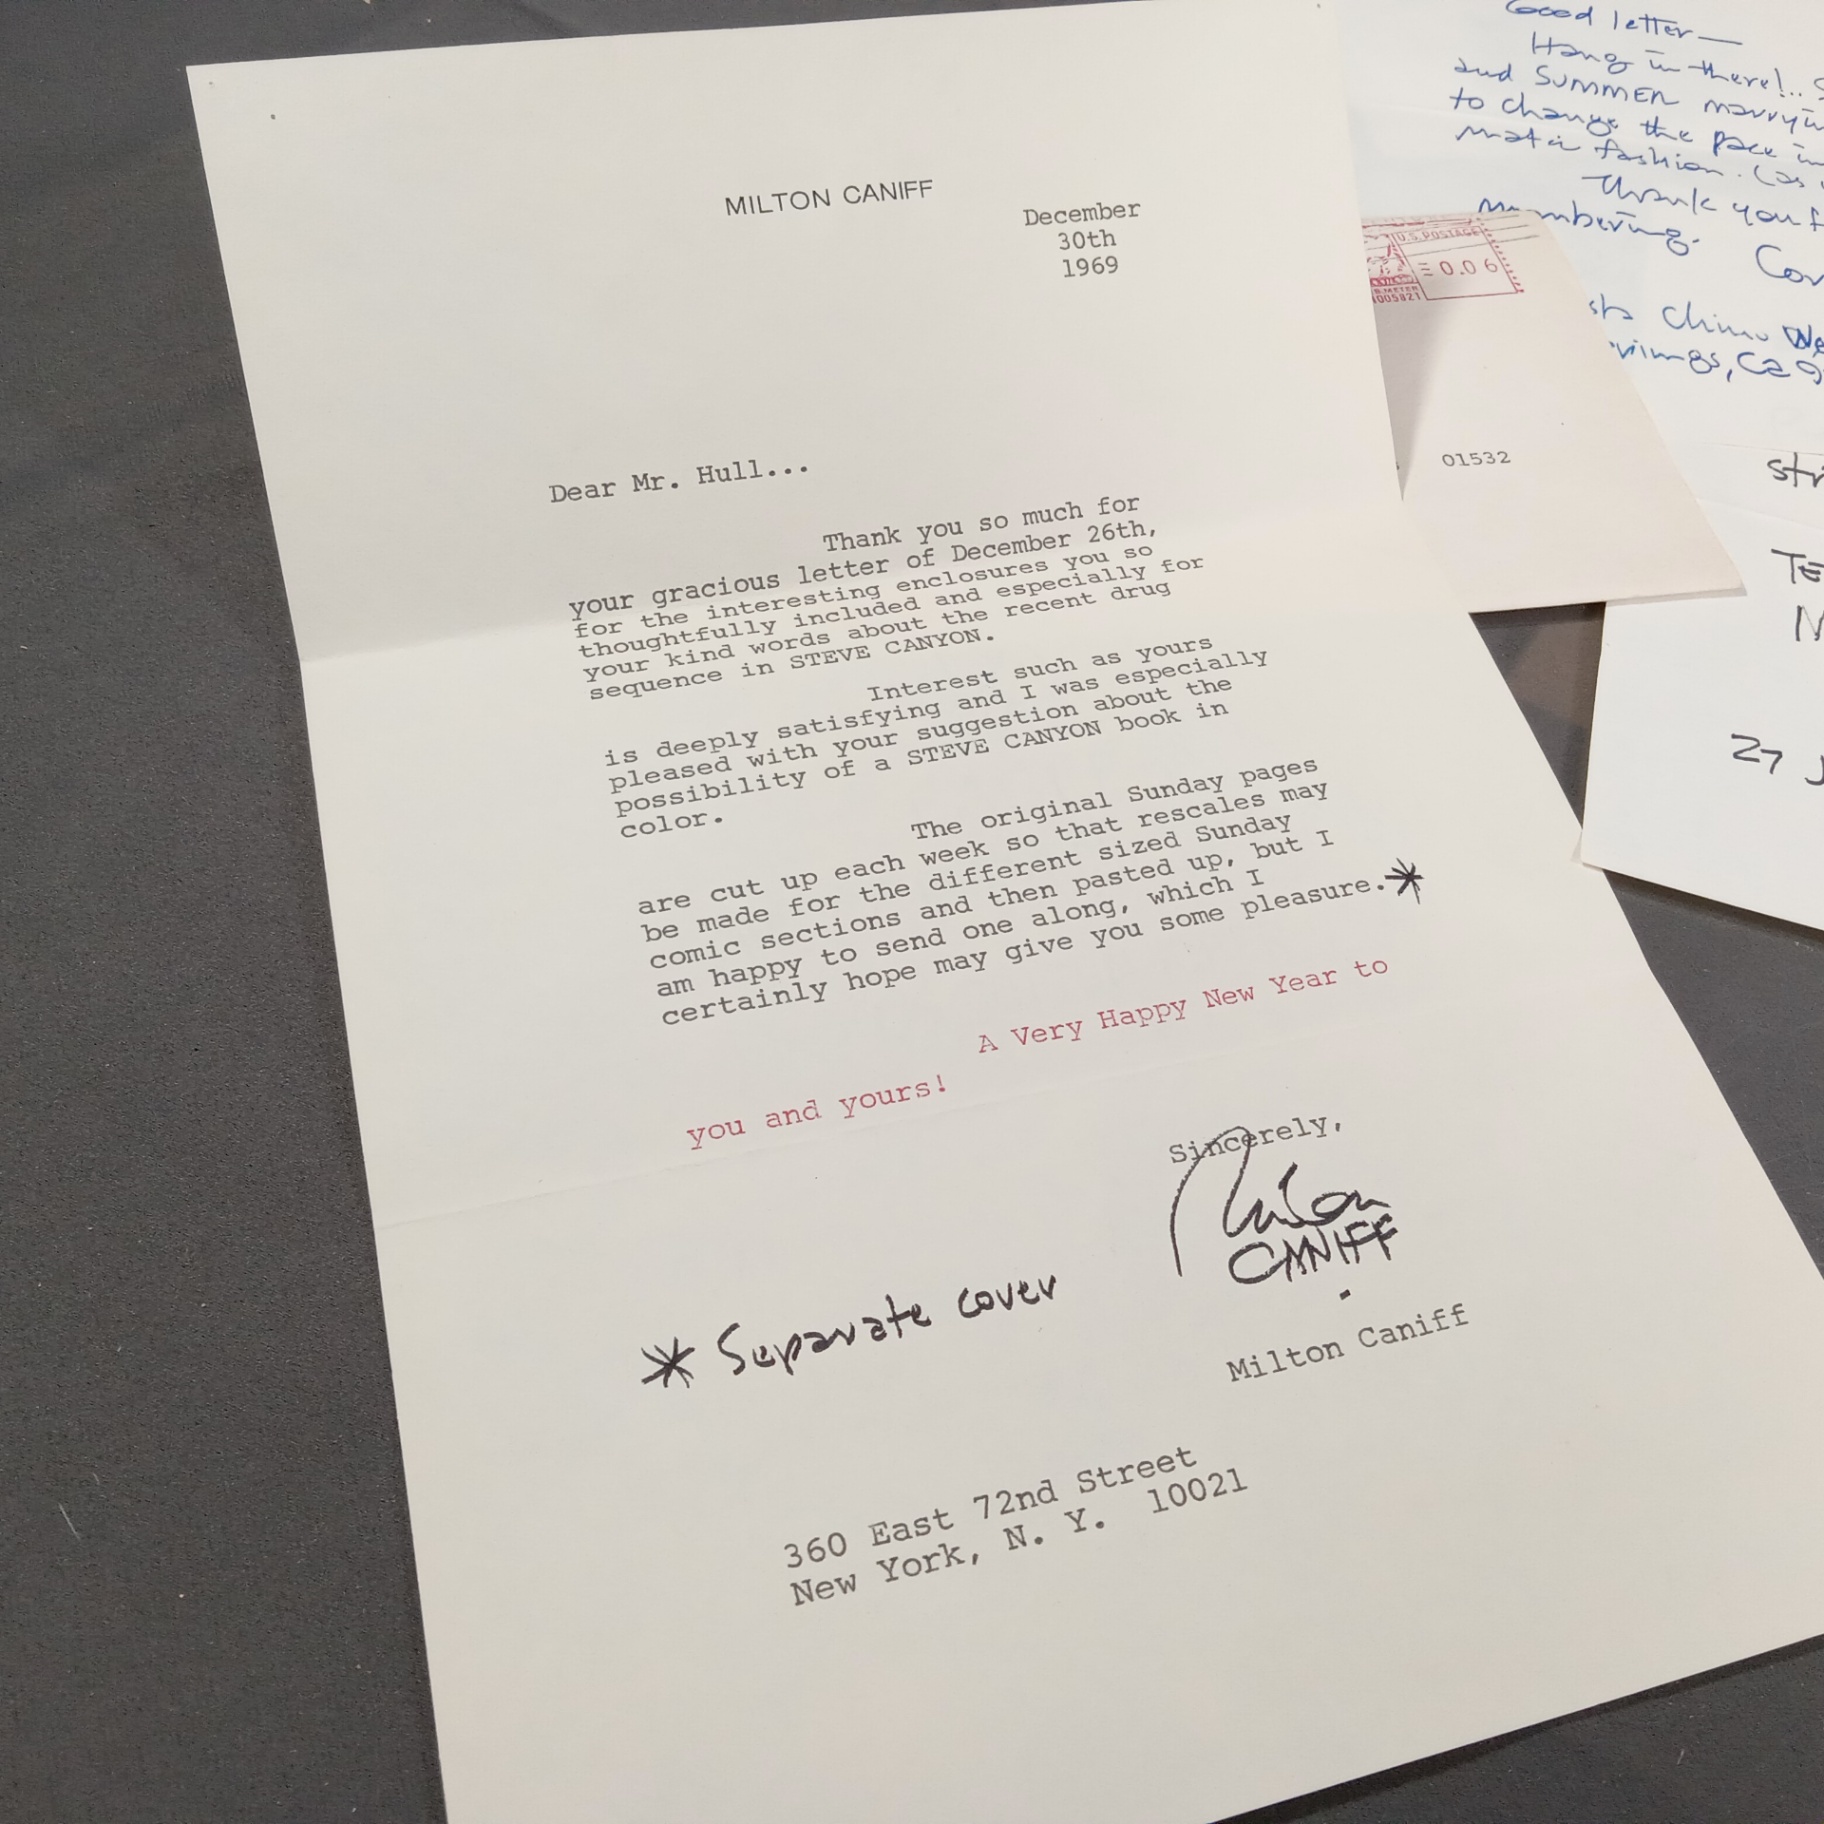 MILTON CANIFF
December
30th
1969
Dear Mr. Hull...
Thank you so much for
your gracious letter of December 26th,
for the interesting enclosures you so
thoughtfully included and especially for
your kind words about the recent drug
sequence in STEVE CANYON.
Interest such as yours
is deeply satisfying and I was especially
pleased with your suggestion about the
possibility of a STEVE CANYON book in
color.
The original Sunday pages
are cut up each week so that rescales may
be made for the different sized Sunday
comic sections and then pasted up, but I
am happy to send one along, which I
certainly hope may give you some pleasure.*
A Very Happy New Year to
you and yours!
Sincerely,
Milton
CANIFF
* Separate cover
Milton Caniff
360 East 72nd Street
New York, N. Y. 10021
Good letter—
Hang in there!..
and SUMMER
to change the pace in
fashion.
Thank you
U.S. POSTAGE
0.06
005821
01532
27